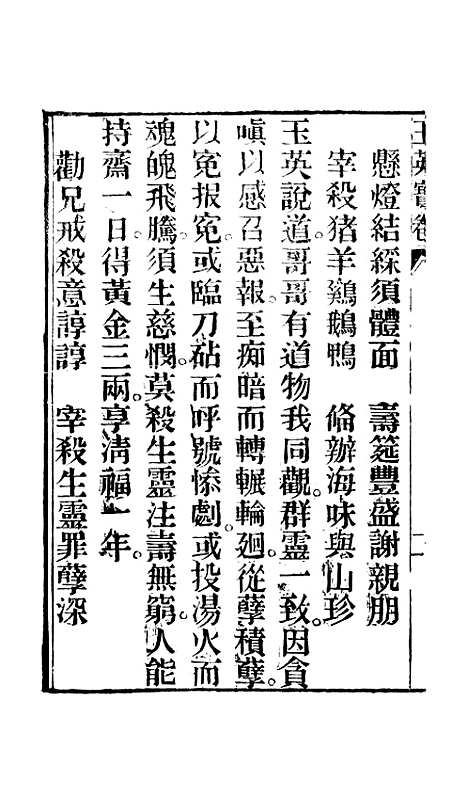 玉英寶卷
懸燈結綵須體面　壽筵豐盛謝親朋
宰殺猪羊鷄鵝鴨　俻辦海味與山珍
玉英說道。哥哥有道物我同觀。群靈一致。因貪
嗔以感召惡報。至痴暗而轉輾輪廻。從孽積孽。
以冤报冤。或臨刀砧而呼號慘劇。或投湯火而
魂魄飛騰。須生慈憫。莫殺生靈注壽無窮。人能
持齋一日得黃金三兩。享清福一年。
勸兄戒殺意諄諄　宰殺生靈罪孽深